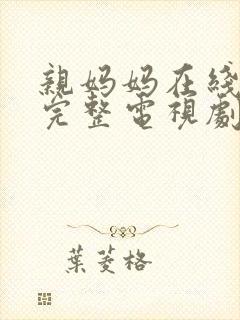 親妈妈在綫
完整電視劇
葉菱格